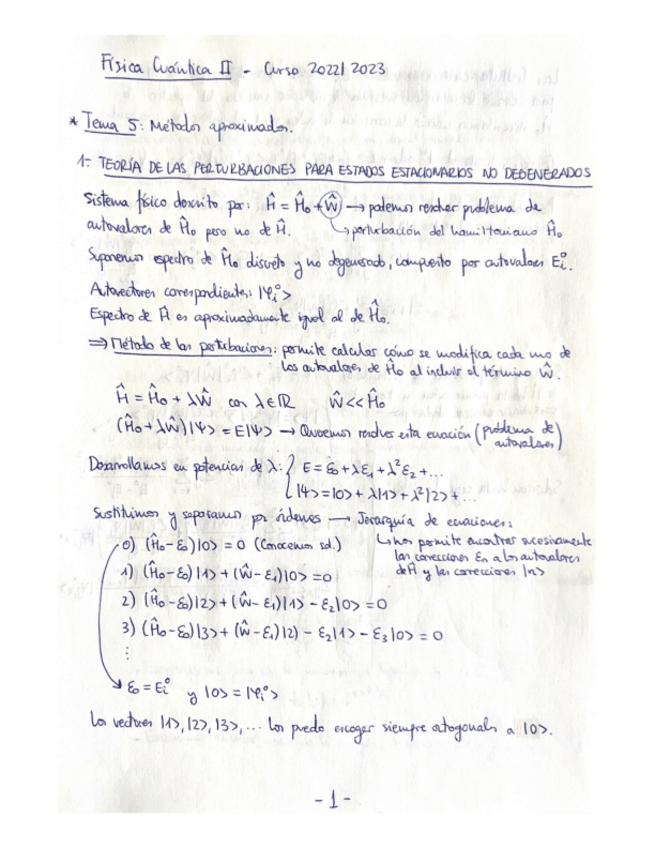 Física Cuántica II - Curso 2022/2023
* Tema 5: Métodos aproximados.
1- TEORÍA DE LAS PERTURBACIONES PARA ESTADOS ESTACIONARIOS NO DEGENERADOS
Sistema físico descrito por: Ĥ = Ĥ₀ + Ŵ → podemos resolver problema de
autovalores de Ĥ₀ pero no de Ĥ. ↳ perturbación del hamiltoniano Ĥ₀
Suponemos espectro de Ĥ₀ discreto y no degenerado, compuesto por autovalores Eᵢ⁰.
Autovectores correspondientes: |φᵢ⁰>
Espectro de Ĥ es aproximadamente igual al de Ĥ₀.
⇒ Método de las perturbaciones: permite calcular cómo se modifica cada uno de
los autovalores de Ĥ₀ al incluir el término Ŵ.
Ĥ = Ĥ₀ + λŴ con λ∈ℝ Ŵ << Ĥ₀
(Ĥ₀ + λŴ)|Ψ> = E|Ψ> → Queremos resolver esta ecuación (problema de
autovalores)
Desarrollamos en potencias de λ: { E = ε₀ + λε₁ + λ²ε₂ + ...
|Ψ> = |0> + λ|1> + λ²|2> + ...
Sustituimos y separamos por órdenes → Jerarquía de ecuaciones:
0) (Ĥ₀ - ε₀)|0> = 0 (Conocemos sol.) ↳ nos permite encontrar sucesivamente
las correcciones εn a los autovalores
1) (Ĥ₀ - ε₀)|1> + (Ŵ - ε₁)|0> = 0 de Ĥ y las correcciones |n>
2) (Ĥ₀ - ε₀)|2> + (Ŵ - ε₁)|1> - ε₂|0> = 0
3) (Ĥ₀ - ε₀)|3> + (Ŵ - ε₁)|2) - ε₂|1> - ε₃|0> = 0
⋮
ε₀ = Eᵢ⁰ y |0> = |φᵢ⁰>
Los vectores |1>, |2>, |3>, ... los puedo escoger siempre ortogonales a |0>.
- 1 -